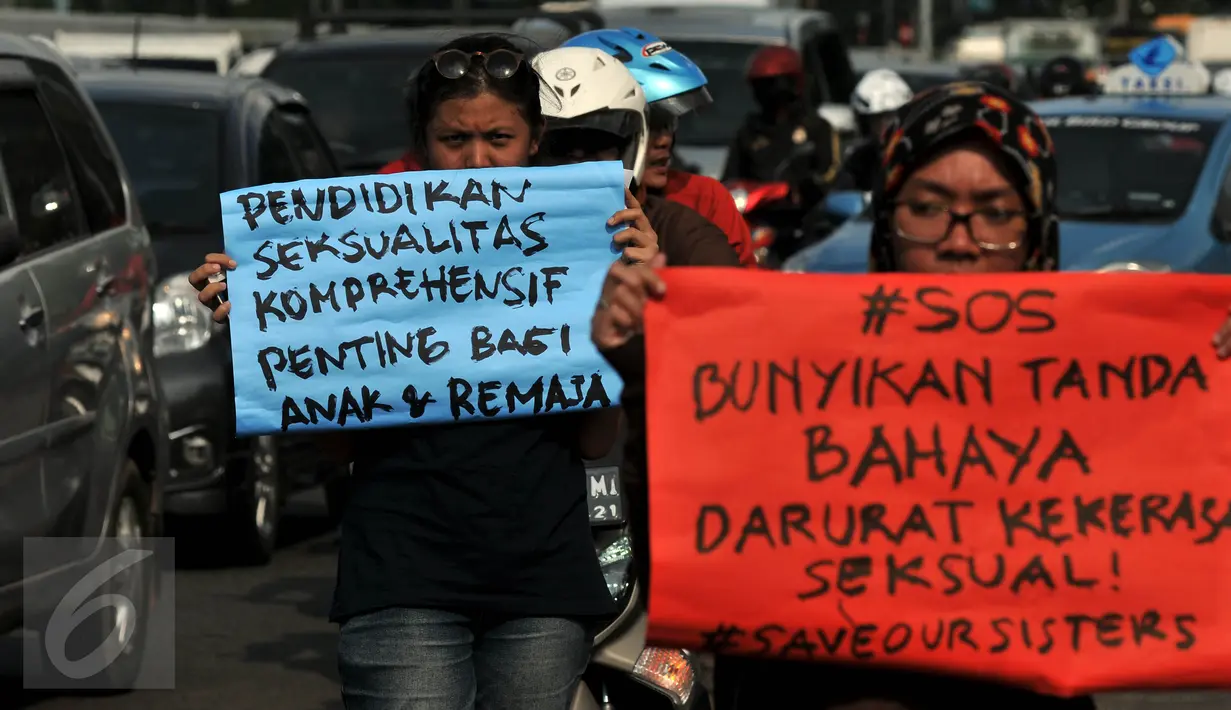 PENDIDIKAN
SEKSUALITAS
KOMPREHENSIF
PENTING BAGI
ANAK & REMAJA
#SOS
BUNYIKAN TANDA
BAHAYA
DARURAT KEKERAS
SEKSUAL!
#SAVEOURSISTERS
TAKSI
6